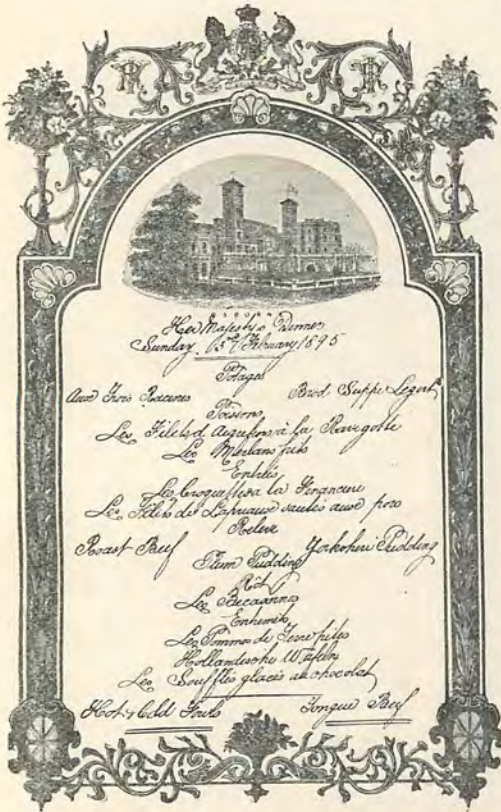 OSBORNE
Her Majesty's Dinner
Sunday February 1895
Potages
Aux Trois Racines Brod Suppe Legirt
Poissons
Les Filets d'Aiguefins à la Ravigotte
Les Merlans frits
Entrées
Les Croquettes a la Financiere
Les Filets de Lapreaux sautés aux pois
Releve
Roast Beef Yorkshire Pudding
Plum Pudding
Rôt
Les Becassines
Entremets
Les Pommes de Terre frites
Hollandische Wafeln
Les Soufflés glacés au chocolat
Hot & Cold Fowls Tongue Beef